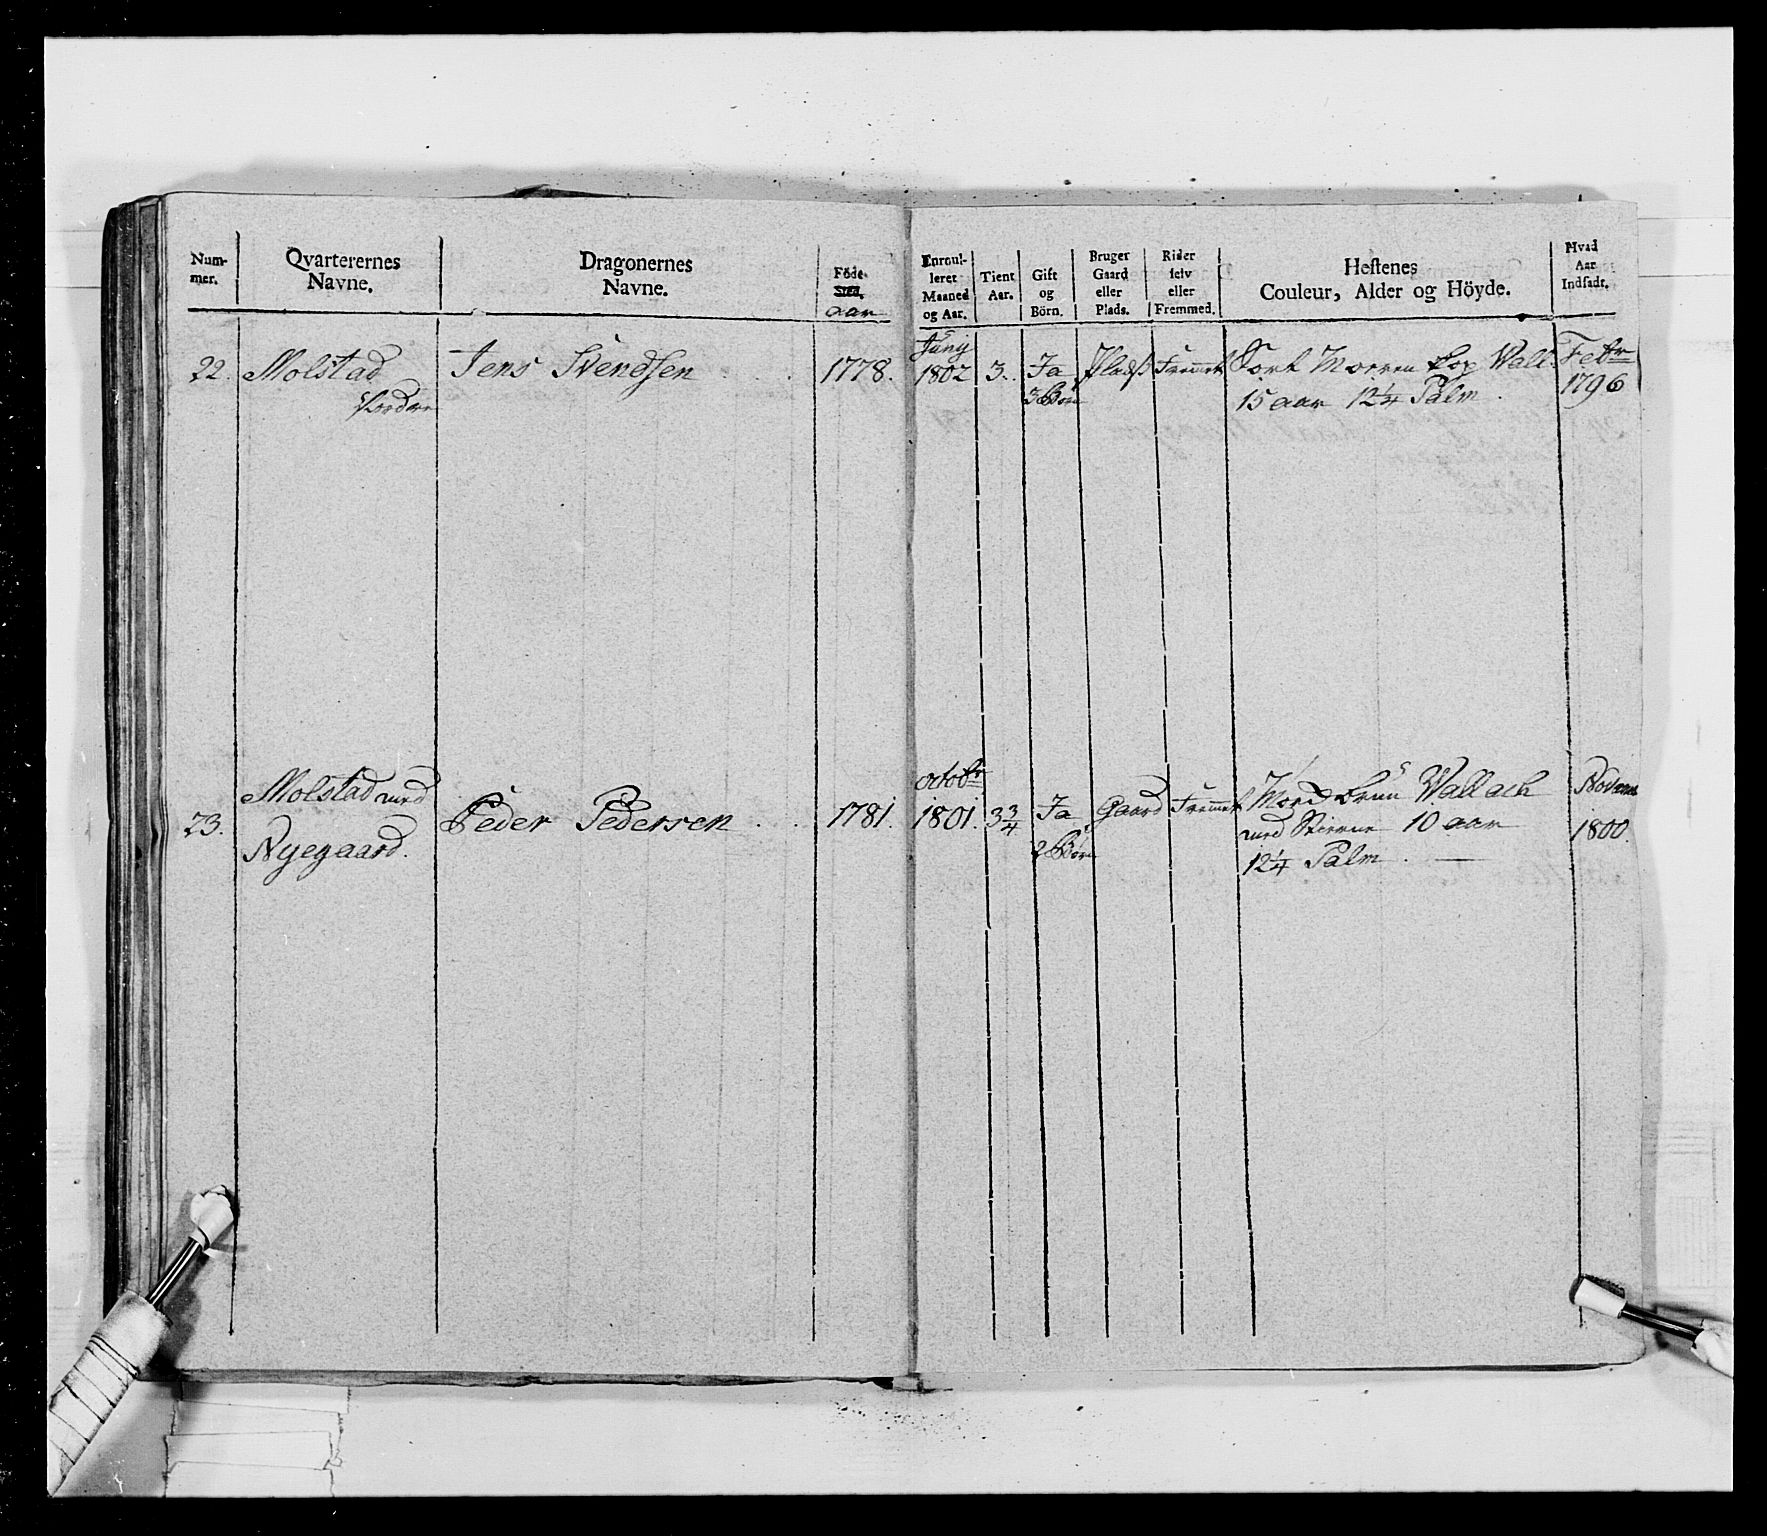 Num-
mer.
Qvarterernes
Navne.
Dragonernes
Navne.
Föde-
Sted.
aar
Enroul-
leret
Maaned
og Aar.
Tient
Aar.
Gift
og
Börn.
Bruger
Gaard
eller
Plads.
Rider
selv
eller
Fremmed.
Hestenes
Couleur, Alder og Höyde.
Hvad
Aar
Indsadt.
22. Molstad
Jens Svendsen
1778.
Junij
1802
3.
Ja
3 Børn
Pladß
Fremmet
Sort Morren Wall.
15 aar 12¼ Palm.
Febr
1796
23.
Molstad med
Nyegaard.
Peder Pedersen
1781.
octobr
1801.
3¾
Ja
2 Børn
Gaard
Fremmet
Mørd brun Wallach
med Stierne 10 aar
12¼ Palm.
Novem
1800.